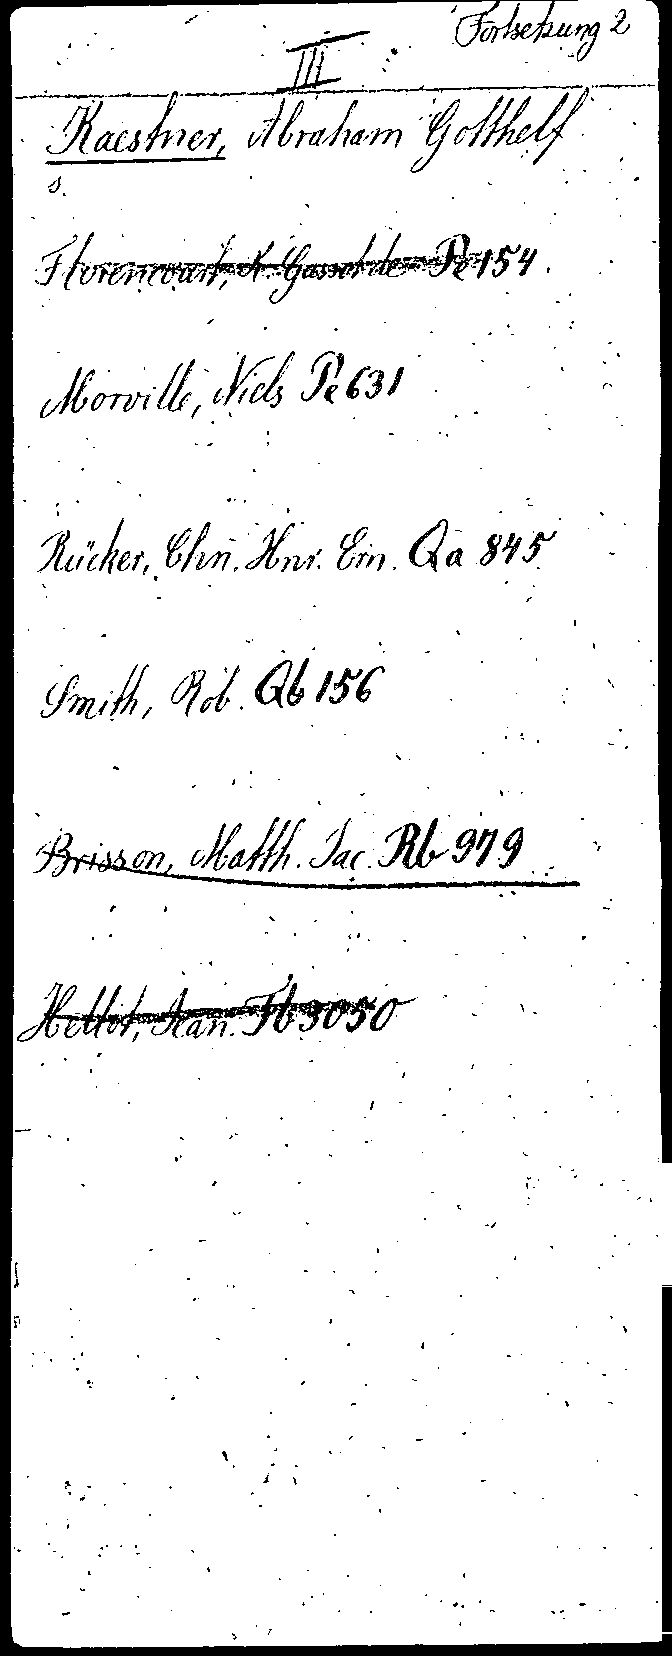 Fortsetzung 2
III
Kaestner, Abraham Gotthelf
s.
Florencourt, K. Gassot de Pe 154.
Morville, Niels Pe 631
Rücker, Chn. Hnr. Ern. Qa 845
Smith, Rob. Qb 156
Brisson, Matth. Jac. Rb 979
Hellot, Jean. Tb 3050